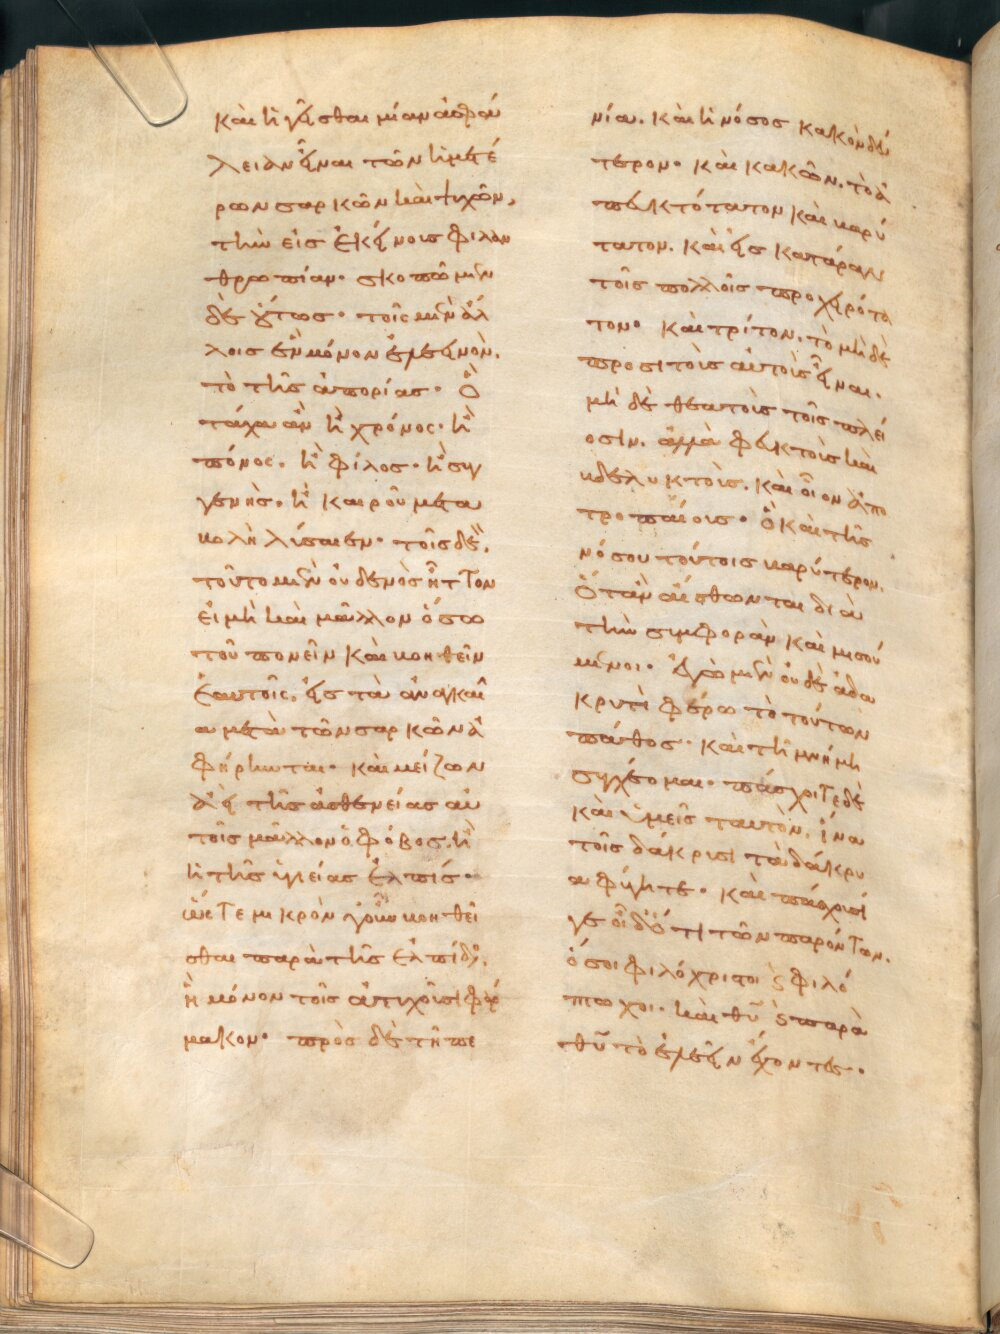 καὶ ἡγεῖσθαι μίαν ἀσφά
λειαν εἶναι τῶν ἡμετέ
ρων σαρκῶν καὶ ψυχῶν,
τὴν εἰς ἐκείνους φιλαν
θρωπίαν· σκοπῶμεν
δὲ οὕτως· τοῖς μὲν ἄλ
λοις ἓν μόνον ἐλεεινὸν,
τὸ τῆς ἀπορίας· Ὃ
τάχα ἂν ἢ χρόνος· ἢ
πόνος· ἢ φίλος· ἢ συγ
γενὴς· ἢ καιροῦ μετα
βολὴ λύσαιεν· τοῖς δὲ,
τοῦτο μὲν οὐδενὸς ἧττον
εἰ μὴ καὶ μᾶλλον ὅσω
τοῦ πονεῖν καὶ βοηθεῖν
ἑαυτοῖς, εἰς τὰ ἀναγκαῖ
α μετὰ τῶν σαρκῶν ἀ
φήρηνται· καὶ μείζων
ἀεὶ τῆς ἀσθενείας αὐ
τοῖς μᾶλλον ὁ φόβος, ἢ
ἡ τῆς ὑγιείας ἐλπίς·
ὥστε μικρὸν γοῦν βοηθεῖ
σθαι παρὰ τῆς ἐλπίδος,
ἣ μόνον τοῖς ἀτυχοῦσι φάρ
μακον· πρὸς δὲ τῆ πε
νία, καὶ ἡ νόσος κακὸν δεύ
τερον· καὶ κακῶν, τὸ ἀ
πευκτότατον καὶ βαρύ
τατον, καὶ εἰς κατάραν
τοῖς πολλοῖς προχειρότα
τον· καὶ τρίτον, τὸ μὴ δὲ
προσιτοὺς αὐτοῖς εἶναι,
μὴ δὲ θεατοὺς τοῖς πλεί
οσιν, ἀλλὰ φευκτοὺς καὶ
βδελυκτοὺς, καὶ οἷον ἀπο
τροπαίους· ὃ καὶ τῆς
νόσου τούτοις βαρύτερον,
ὅταν αἴσθωνται διὰ
τὴν συμφορὰν καὶ μισού
μενοι· ἐγὼ μὲν οὐδὲ ἀδα
κρυτὶ φέρω τὸ τούτων
πάθος· καὶ τῆ μνήμη
συγχέομαι· πάσχοιτε δὲ
καὶ ὑμεῖς ταυτὸν, ἵνα
τοῖς δάκρυσι τὰ δάκρυ
α φύγητε· καὶ πάσχουσί
γε οἶδ' ὅτι τῶν παρόντων,
ὅσοι φιλόχριστοι ϗ φιλό
πτωχοι· καὶ θυ ϗ παρὰ
θυ τὸ ἐλεεῖν ἔχοντες·